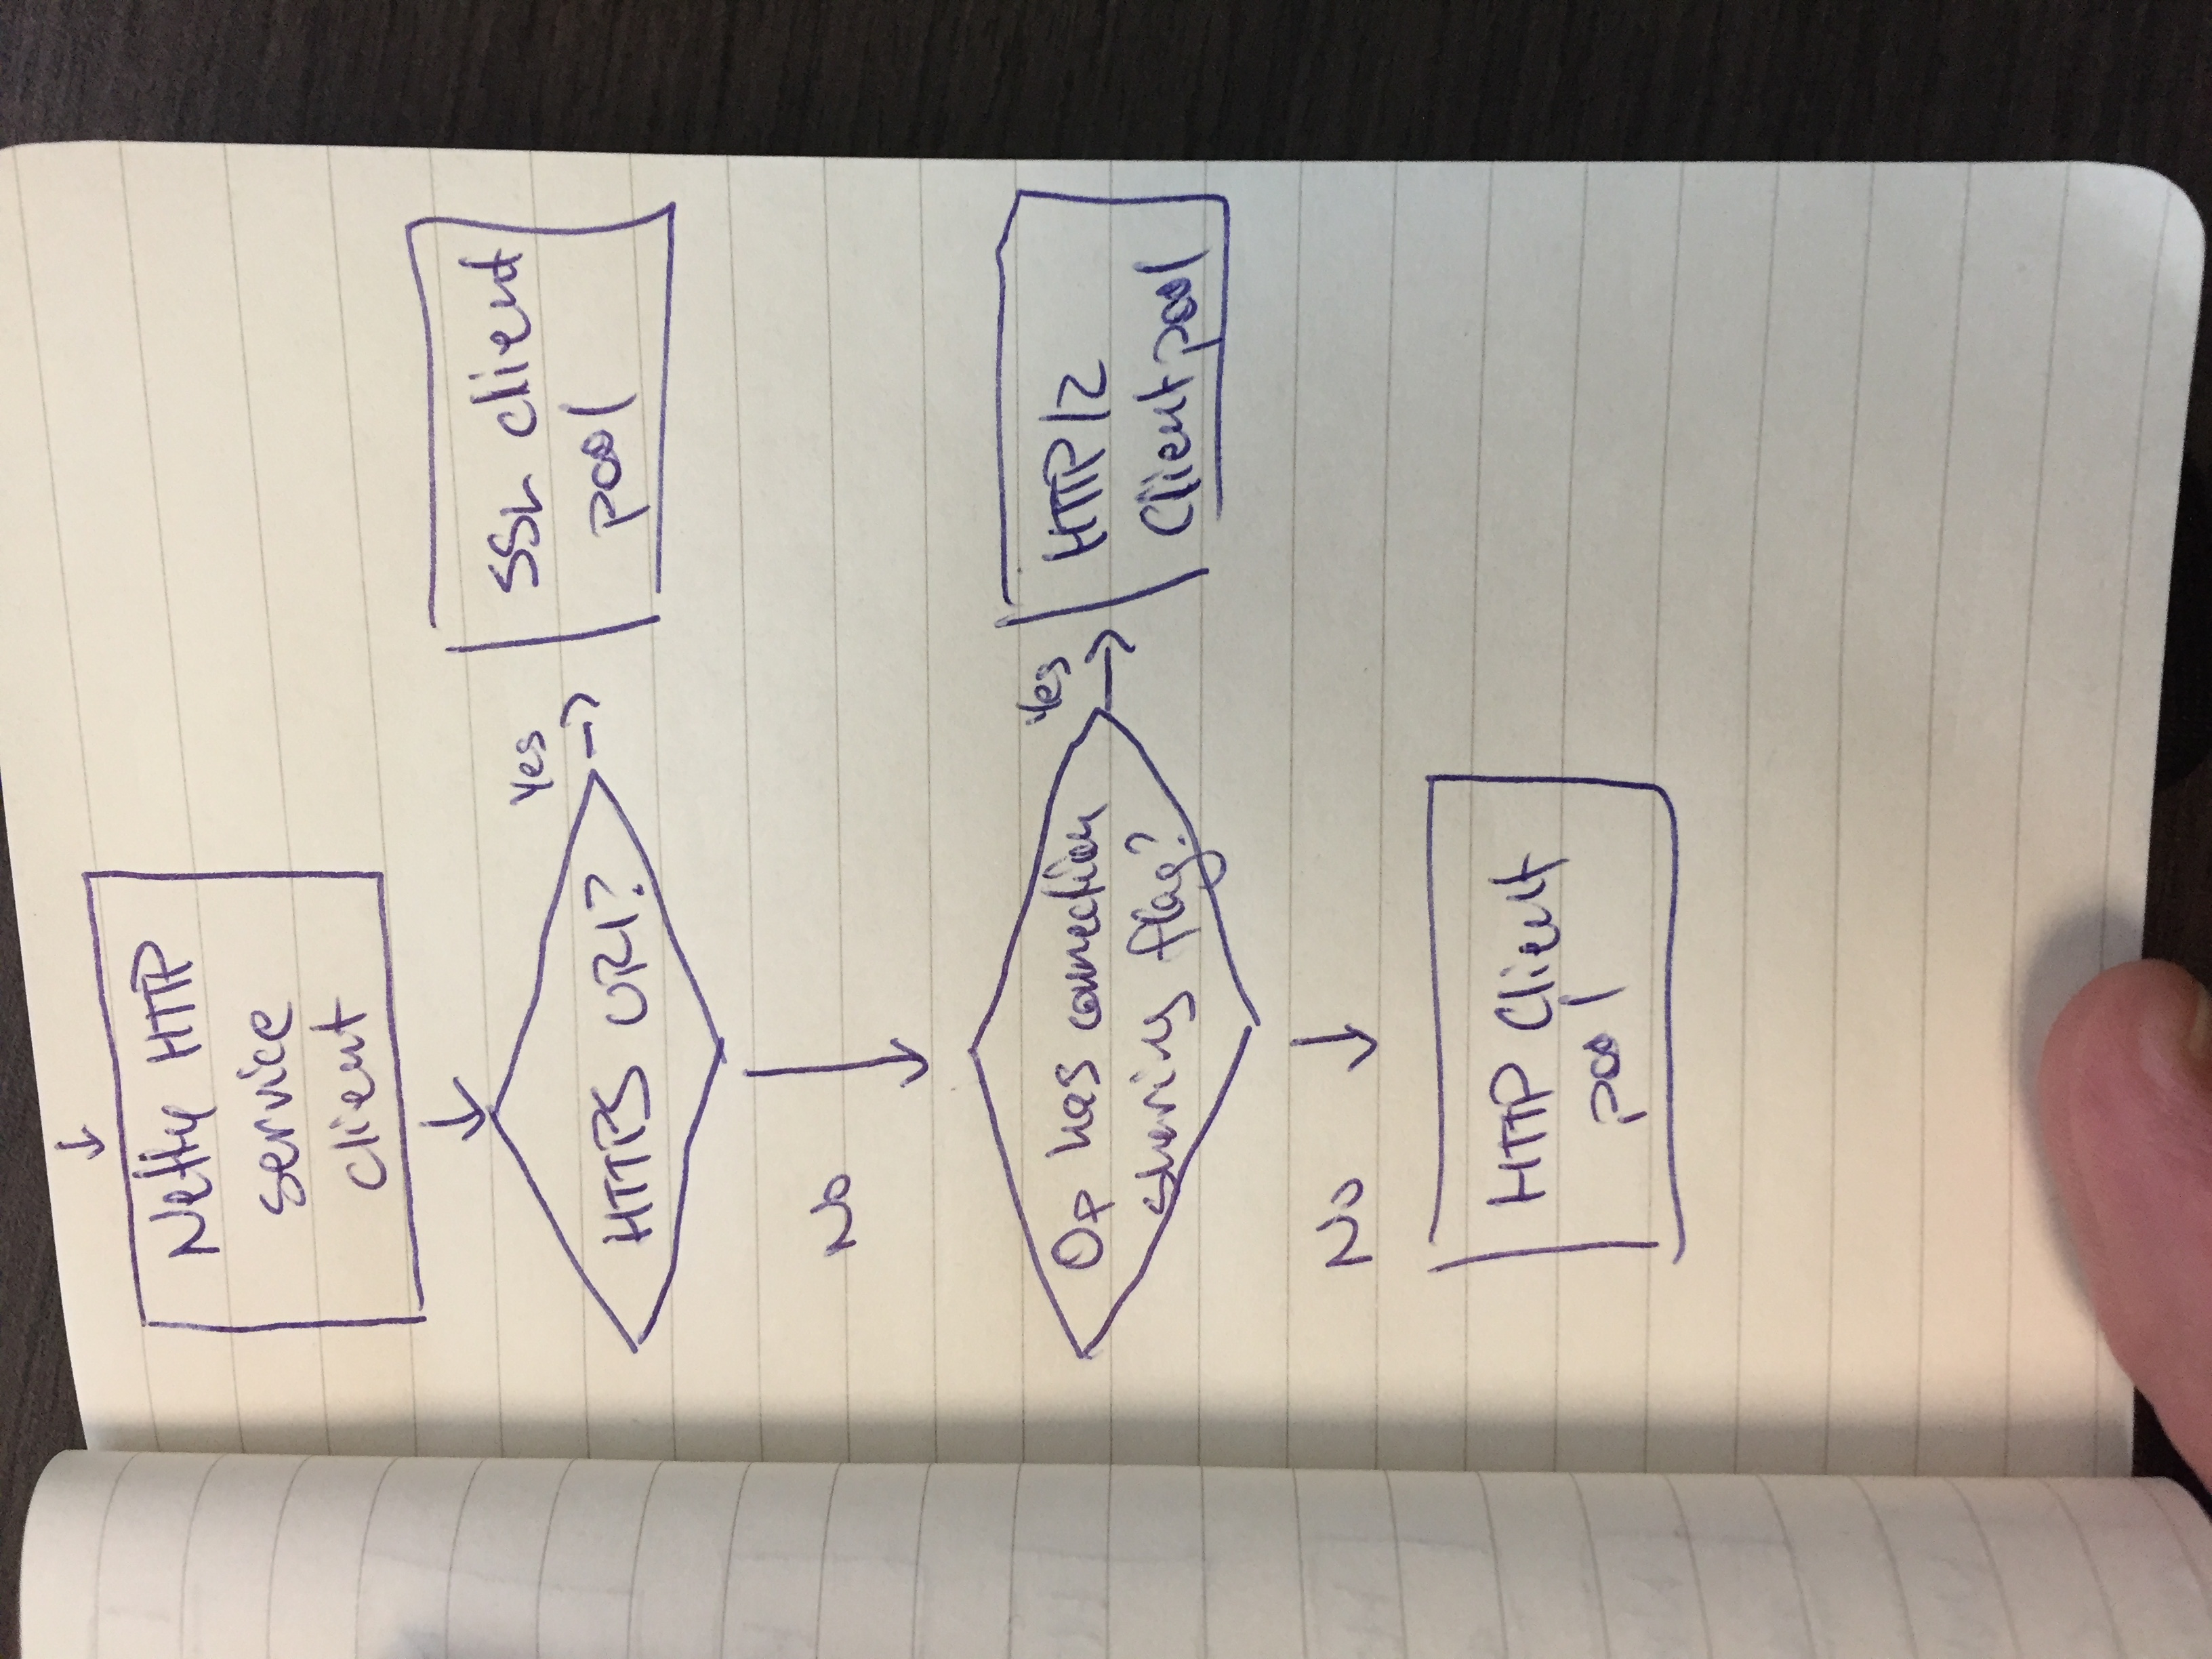 Netty HTTP
service
client
HTTPS URI?
Yes
SSL client
pool
No
Op has connection
sharing flag?
Yes
HTTP/2
Client pool
No
HTTP Client
pool